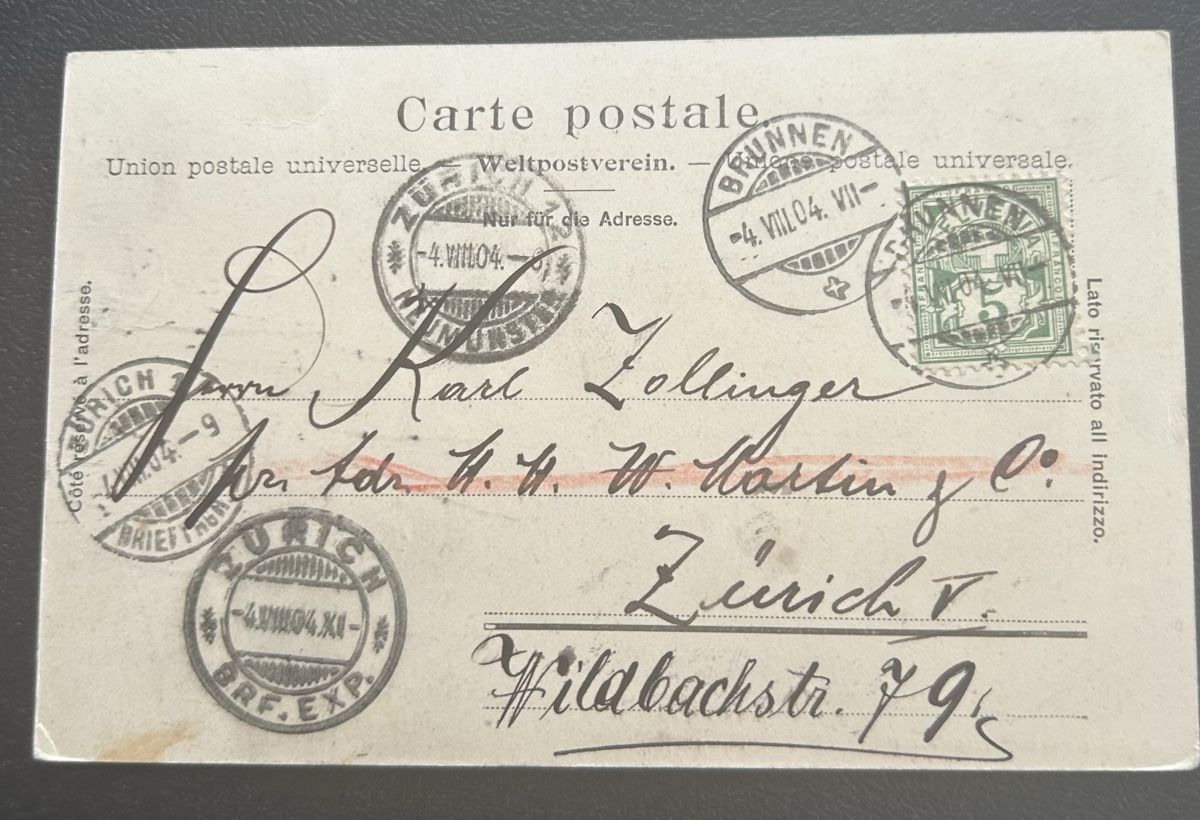 Carte postale.
Union postale universelle. — Weltpostverein. — Unione postale universale.
Nur für die Adresse.
Côté réservé à l'adresse.
Lato riservato all indirizzo.
BRUNNEN
-4.VIII.04. VII-
BRUNNEN
VIII.04. VII-
5
ZÜRICH 12
-4.VIII.04.-
NEUMÜNSTER
ZÜRICH 1
VIII.04.-9
BRIEFTRÄGER
ZÜRICH
-4.VIII.04.XI-
BRF. EXP.
Herrn Karl Zollinger
pr. Adr. H. H. W. Martin & Co.
Zürich V.
Wildbachstr. 79.